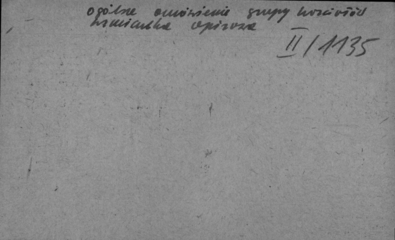 ogólne omówienie grupy kościołów
wzmianka opisowa
II/1135